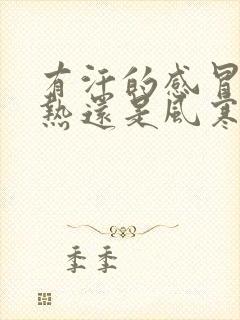 有汗的感冒
熱還是風寒
季季